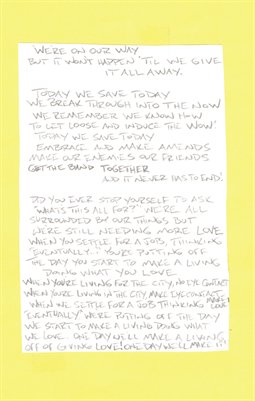 WE'RE ON OUR WAY
BUT IT WON'T HAPPEN 'TIL WE GIVE
IT ALL AWAY.
TODAY WE SAVE TODAY
WE BREAK THROUGH INTO THE NOW
WE REMEMBER WE KNOW HOW
TO LET LOOSE AND INDUCE THE WOW.
TODAY WE SAVE TODAY
EMBRACE AND MAKE AMENDS
MAKE OUR ENEMIES OUR FRIENDS
GET THE BAND TOGETHER
AND IT NEVER HAS TO END!
DID YOU EVER STOP YOURSELF TO ASK
"WHAT'S THIS ALL FOR?" WE'RE ALL
SURROUNDED BY OUR THINGS BUT
WE'RE STILL NEEDING MORE LOVE
WHEN YOU SETTLE FOR A JOB, THINKING
"EVENTUALLY..." YOU'RE PUTTING OFF
THE DAY YOU START TO MAKE A LIVING
DOING WHAT YOU LOVE
WHEN YOU'RE LIVING FOR THE CITY, NO EYE CONTACT
WHEN YOU'RE LIVING IN THE CITY, MAKE EYE CONTACT
MAKE
WHEN WE SETTLE FOR A JOB THINKING LOVE
"EVENTUALLY" WE'RE PUTTING OFF THE DAY
WE START TO MAKE A LIVING DOING WHAT
WE LOVE. ONE DAY WE'LL MAKE A LIVING
OFF OF GIVING LOVE! ONE DAY WE'LL MAKE IT!